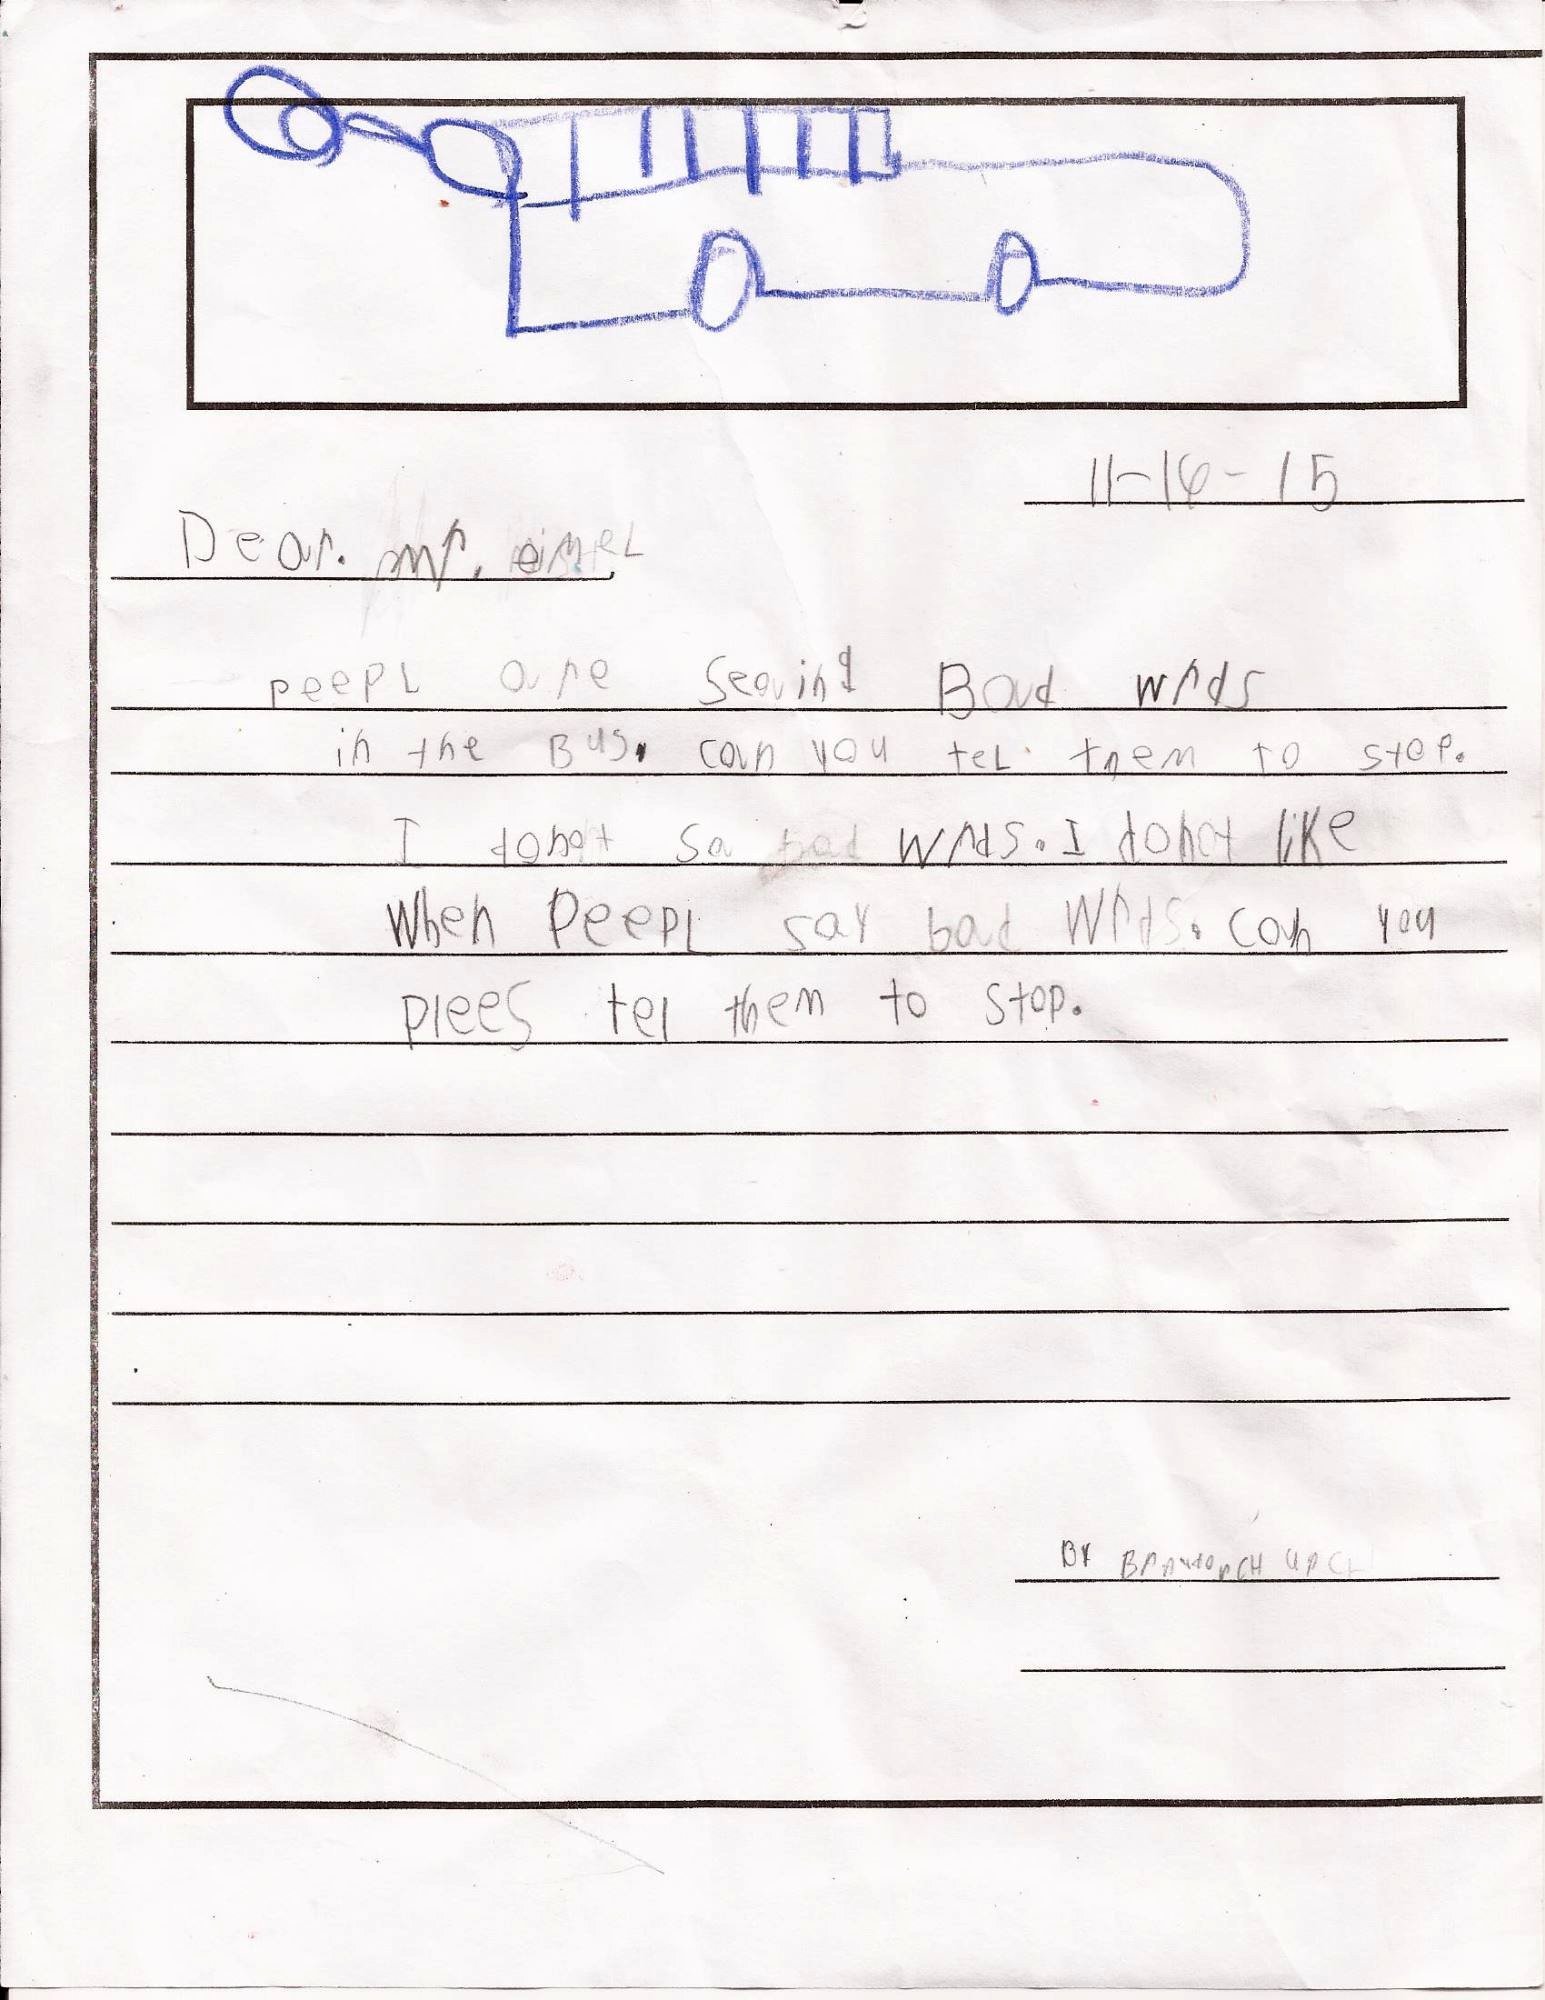 11-16-15
Dear. mr. eimeL
peepL are Seaing Bad wrds
in the Bus. can you teL them to stop.
I donot sa bad wrds. I donot like
When PeepL say bad Wrds. can you
plees tel them to stop.
BY